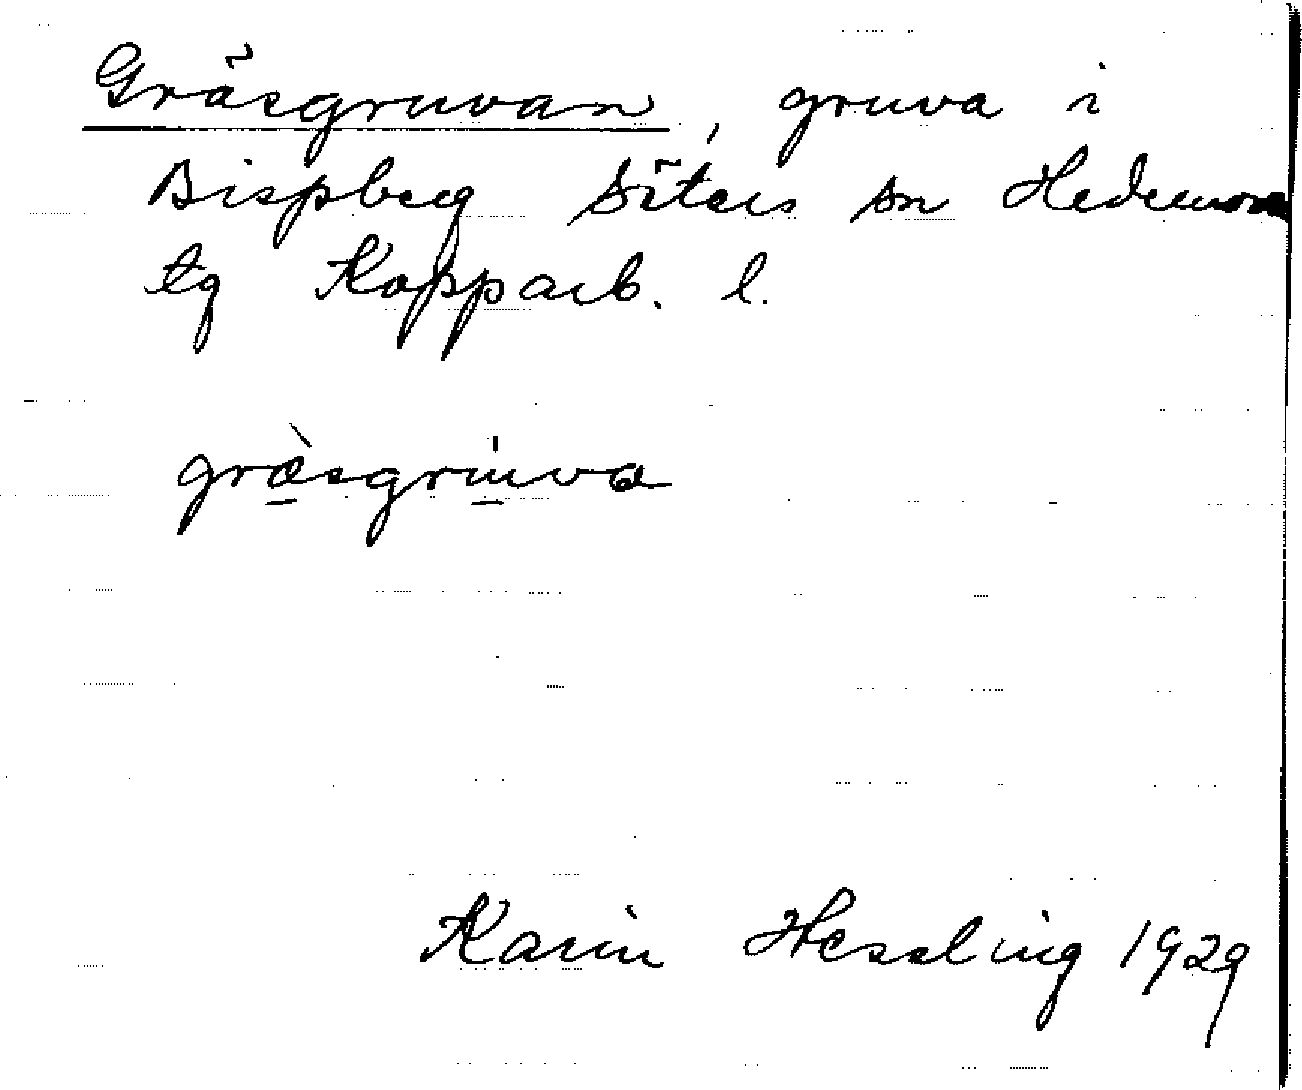 Gräsgruvan, gruva i
Bispberg Säters sn Hedemora
tg Kopparb. l.
græ̀sgru̇va
Karin Hessling 1929